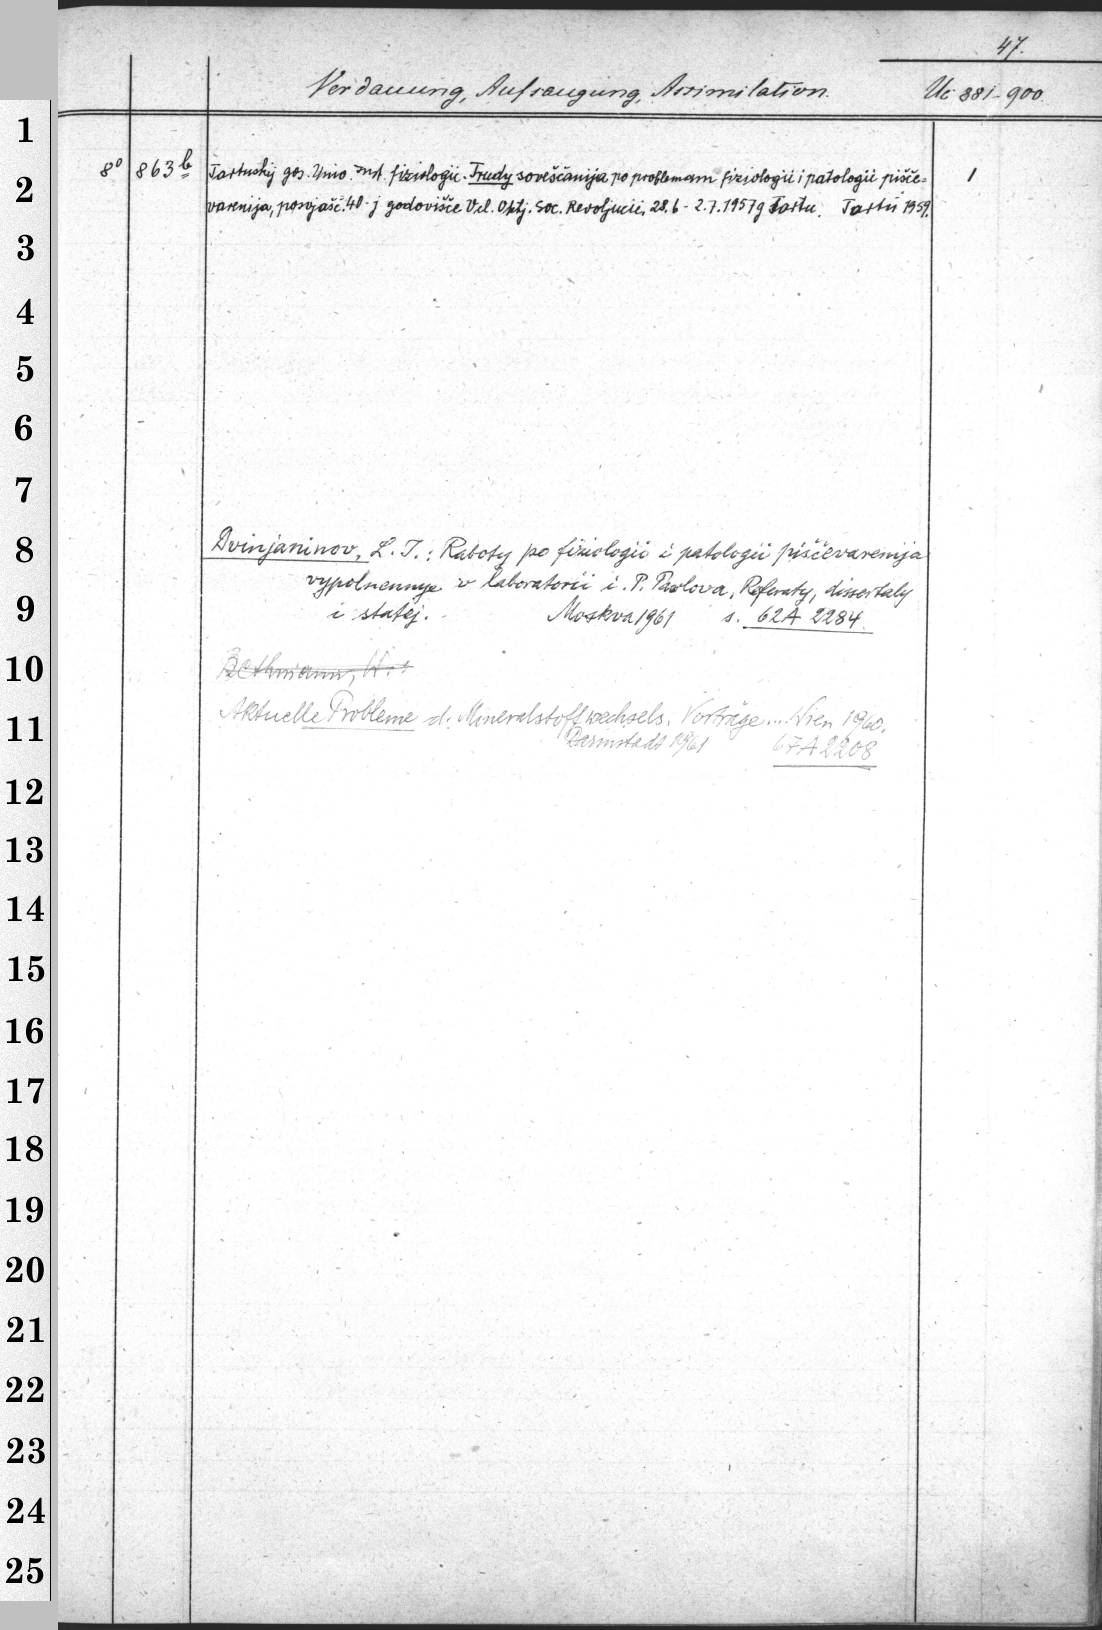 47.
Verdauung, Aufsaugung, Assimilation. Uc 881-900
1
8° 863 b Tartuskij gos. Univ. Inst. fiziologii. Trudy soveščanija po problemam fiziologii i patologii pišče=
1
2
varenija, posvjašč. 40-j godovišče Vel. Oktj. Soc. Revoljucii, 28.6 - 2.7.1957 g Tartu. Tartu 1959.
3
4
5
6
7
8
Dvinjaninov, L. I.: Raboty po fiziologii i patologii piščevarenija
vypolnennye v laboratorii i. P. Pavlova, Referaty, dissertaly
9
i statej. Moskva 1961 s. 62A 2284
10
Bethmann, H.:
11
Aktuelle Probleme d. Mineralstoffwechsels. Vorträge... Wien 1960.
Darmstadt 1961 67A 2208
12
13
14
15
16
17
18
19
20
21
22
23
24
25